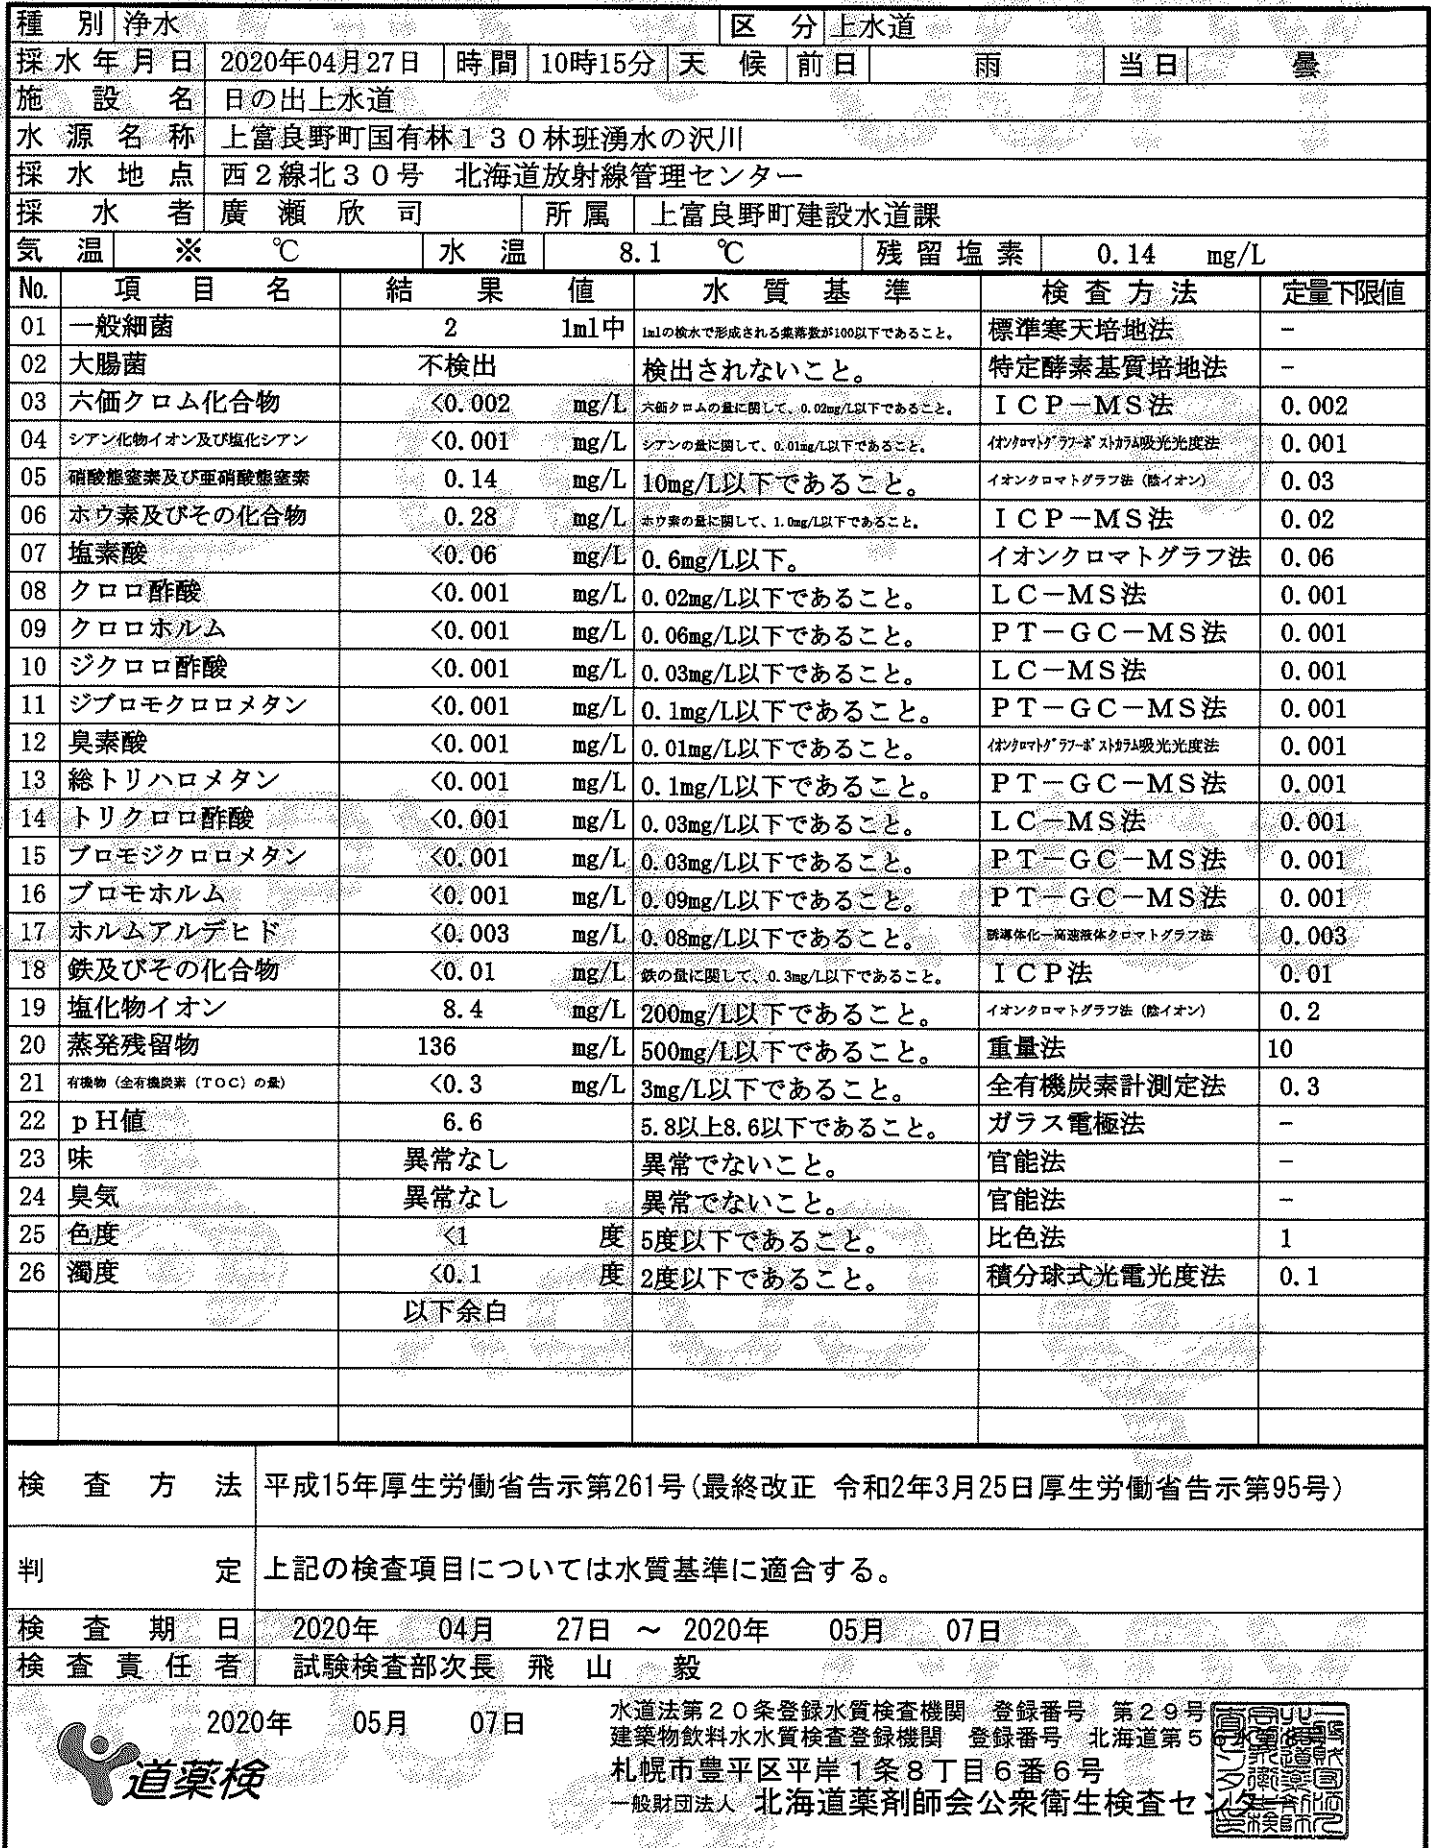 種別 浄水 区分 上水道
採水年月日 2020年04月27日 時間 10時15分 天候 前日 雨 当日 曇
施設名 日の出上水道
水源名称 上富良野町国有林１３０林班湧水の沢川
採水地点 西２線北３０号 北海道放射線管理センター
採水者 廣瀬欣司 所属 上富良野町建設水道課
気温 ※ ℃ 水温 8.1 ℃ 残留塩素 0.14 mg/L
No. 項目名 結果値 水質基準 検査方法 定量下限値
01 一般細菌 2 1ml中 1mlの検水で形成される集落数が100以下であること。 標準寒天培地法 －
02 大腸菌 不検出 検出されないこと。 特定酵素基質培地法 －
03 六価クロム化合物 <0.002 mg/L 六価クロムの量に関して、0.02mg/L以下であること。 ＩＣＰ－ＭＳ法 0.002
04 シアン化物イオン及び塩化シアン <0.001 mg/L シアンの量に関して、0.01mg/L以下であること。 ｲｵﾝｸﾛﾏﾄｸﾞﾗﾌｰﾎﾟｽﾄｶﾗﾑ吸光光度法 0.001
05 硝酸態窒素及び亜硝酸態窒素 0.14 mg/L 10mg/L以下であること。 イオンクロマトグラフ法（陰イオン） 0.03
06 ホウ素及びその化合物 0.28 mg/L ホウ素の量に関して、1.0mg/L以下であること。 ＩＣＰ－ＭＳ法 0.02
07 塩素酸 <0.06 mg/L 0.6mg/L以下。 イオンクロマトグラフ法 0.06
08 クロロ酢酸 <0.001 mg/L 0.02mg/L以下であること。 ＬＣ－ＭＳ法 0.001
09 クロロホルム <0.001 mg/L 0.06mg/L以下であること。 ＰＴ－ＧＣ－ＭＳ法 0.001
10 ジクロロ酢酸 <0.001 mg/L 0.03mg/L以下であること。 ＬＣ－ＭＳ法 0.001
11 ジブロモクロロメタン <0.001 mg/L 0.1mg/L以下であること。 ＰＴ－ＧＣ－ＭＳ法 0.001
12 臭素酸 <0.001 mg/L 0.01mg/L以下であること。 ｲｵﾝｸﾛﾏﾄｸﾞﾗﾌｰﾎﾟｽﾄｶﾗﾑ吸光光度法 0.001
13 総トリハロメタン <0.001 mg/L 0.1mg/L以下であること。 ＰＴ－ＧＣ－ＭＳ法 0.001
14 トリクロロ酢酸 <0.001 mg/L 0.03mg/L以下であること。 ＬＣ－ＭＳ法 0.001
15 ブロモジクロロメタン <0.001 mg/L 0.03mg/L以下であること。 ＰＴ－ＧＣ－ＭＳ法 0.001
16 ブロモホルム <0.001 mg/L 0.09mg/L以下であること。 ＰＴ－ＧＣ－ＭＳ法 0.001
17 ホルムアルデヒド <0.003 mg/L 0.08mg/L以下であること。 誘導体化－高速液体クロマトグラフ法 0.003
18 鉄及びその化合物 <0.01 mg/L 鉄の量に関して、0.3mg/L以下であること。 ＩＣＰ法 0.01
19 塩化物イオン 8.4 mg/L 200mg/L以下であること。 イオンクロマトグラフ法（陰イオン） 0.2
20 蒸発残留物 136 mg/L 500mg/L以下であること。 重量法 10
21 有機物（全有機炭素（ＴＯＣ）の量） <0.3 mg/L 3mg/L以下であること。 全有機炭素計測定法 0.3
22 ｐＨ値 6.6 5.8以上8.6以下であること。 ガラス電極法 －
23 味 異常なし 異常でないこと。 官能法 －
24 臭気 異常なし 異常でないこと。 官能法 －
25 色度 <1 度 5度以下であること。 比色法 1
26 濁度 <0.1 度 2度以下であること。 積分球式光電光度法 0.1
以下余白
検査方法 平成15年厚生労働省告示第261号(最終改正 令和2年3月25日厚生労働省告示第95号)
判定 上記の検査項目については水質基準に適合する。
検査期日 2020年 04月 27日 ～ 2020年 05月 07日
検査責任者 試験検査部次長 飛山 毅
2020年 05月 07日
道薬検
水道法第２０条登録水質検査機関 登録番号 第２９号
建築物飲料水水質検査登録機関 登録番号 北海道第５
札幌市豊平区平岸１条８丁目６番６号
一般財団法人 北海道薬剤師会公衆衛生検査センター